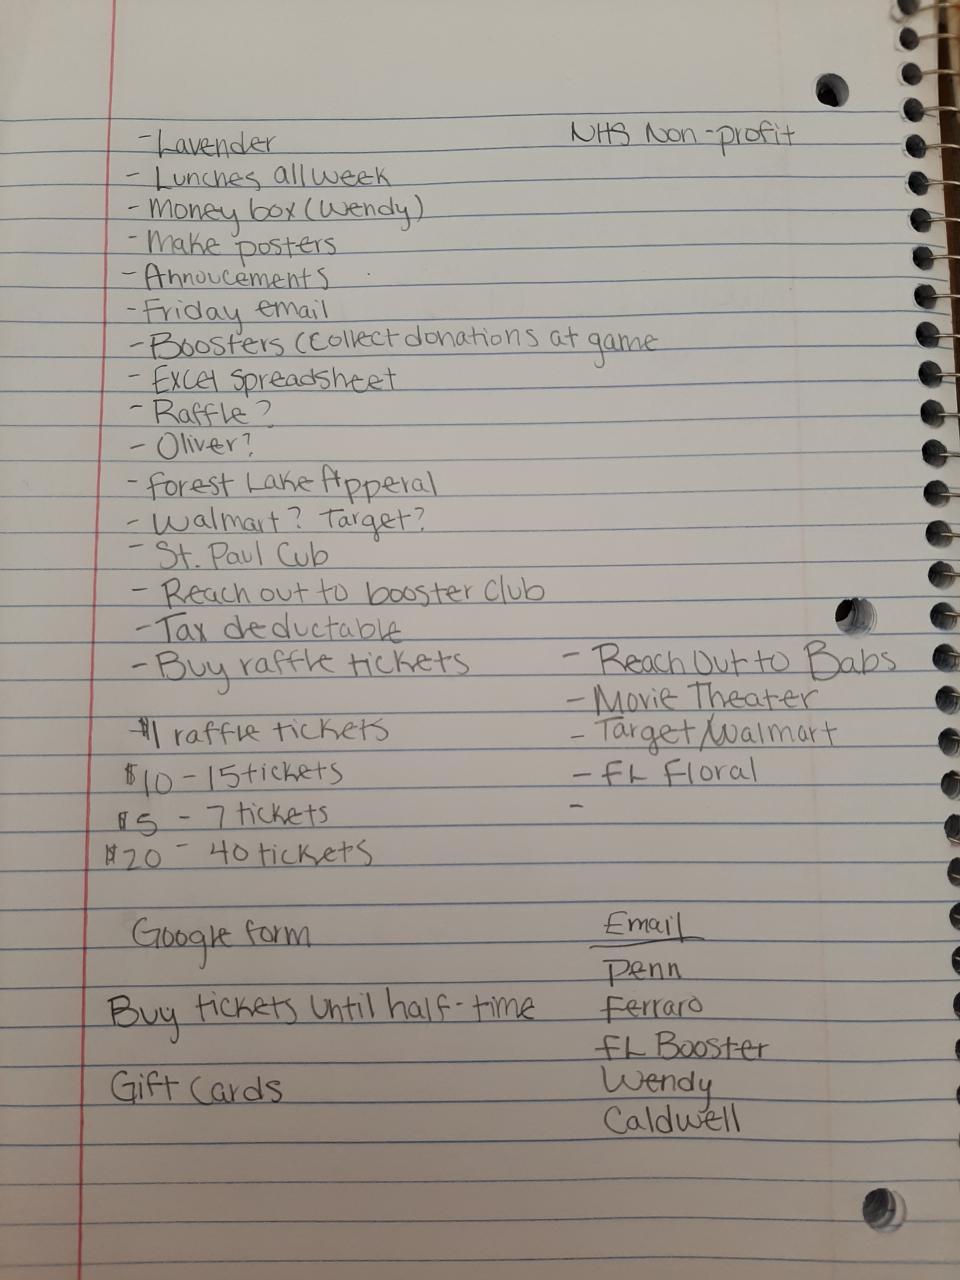 - Lavender
NHS Non-profit
- Lunches all week
- Money box (Wendy)
- Make posters
- Annoucements
- Friday email
- Boosters (collect donations at game
- Excel spreadsheet
- Raffle?
- Oliver?
- Forest Lake Apperal
- Walmart? Target?
- St. Paul Cub
- Reach out to booster club
- Tax deductable
- Buy raffle tickets
$1 raffle tickets
$10 - 15 tickets
$5 - 7 tickets
$20 - 40 tickets
- Reach out to Babs
- Movie Theater
- Target/Walmart
- FL Floral
-
Google form
Buy tickets until half-time
Gift Cards
Email
Penn
Ferraro
FL Booster
Wendy
Caldwell